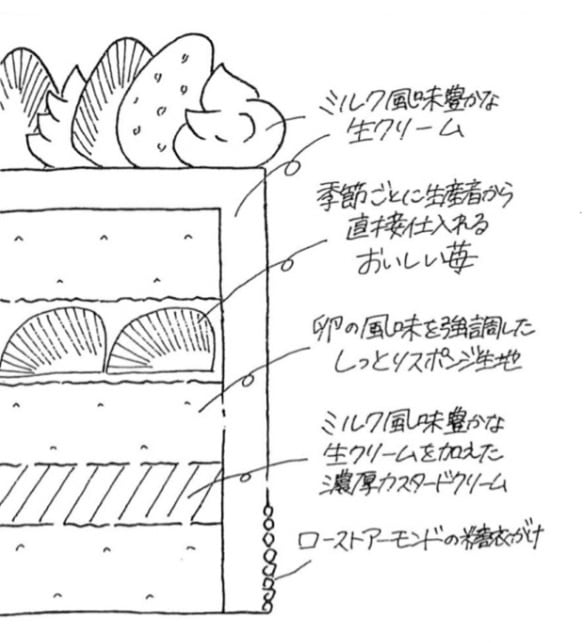 ミルク風味豊かな
生クリーム
季節ごとに生産者から
直接仕入れる
おいしい苺
卵の風味を強調した
しっとりスポンジ生地
ミルク風味豊かな
生クリームを加えた
濃厚カスタードクリーム
ローストアーモンドの糖衣がけ